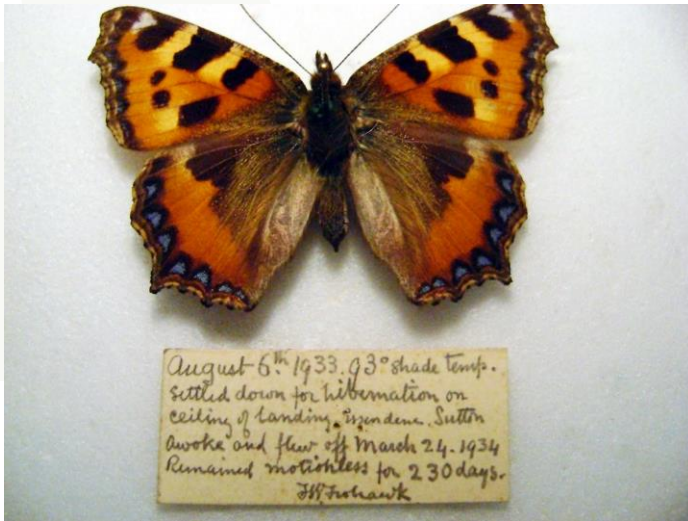 August 6th 1933. 93° shade temp.
settled down for hibernation on
ceiling of landing. Essendene. Sutton
awoke and flew off March 24. 1934
Remained motionless for 230 days.
FWFrohawk